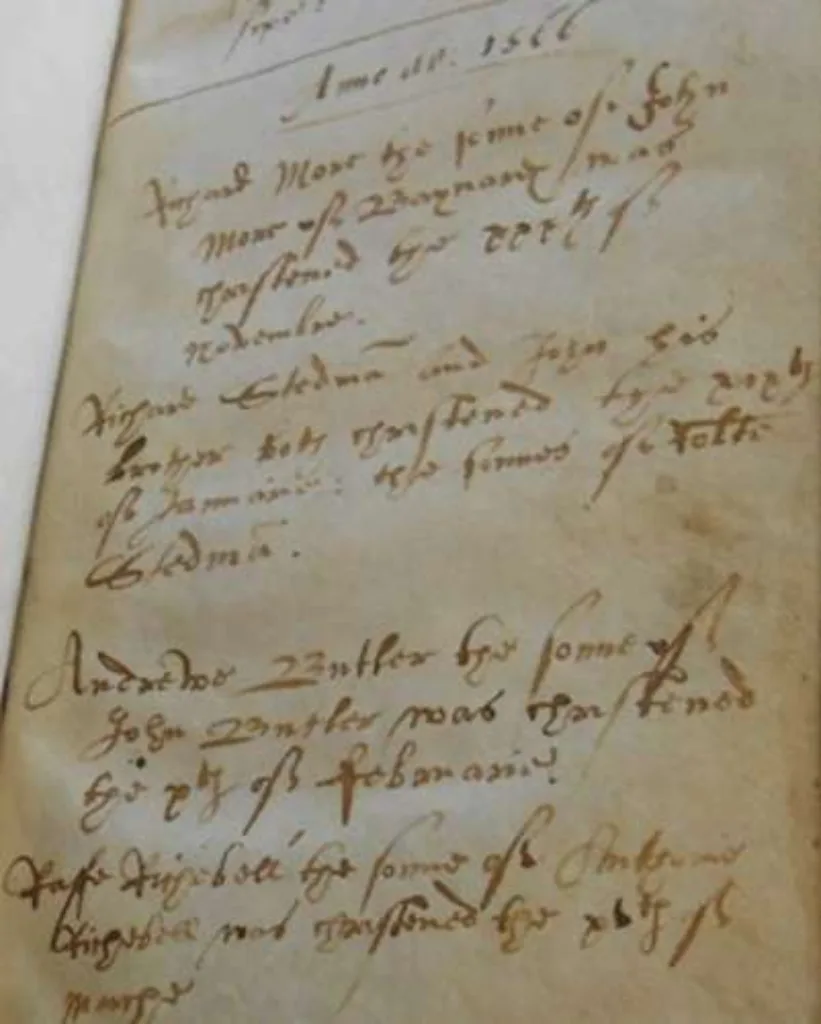 Anno do. 1566
Richard More the sonne off John
More off Baynard was
christened the xxxth off
novembre.
Richard Stedmā and John his
brother both christened the xixth
off Januarie: the sonnes off
Stedmā.
Andrewe Butler the sonne off
John Butler was christened
the xth off Februarie.
Raffe Richebell the sonne off Anthonie
Richebell was christened the xvth off
marche